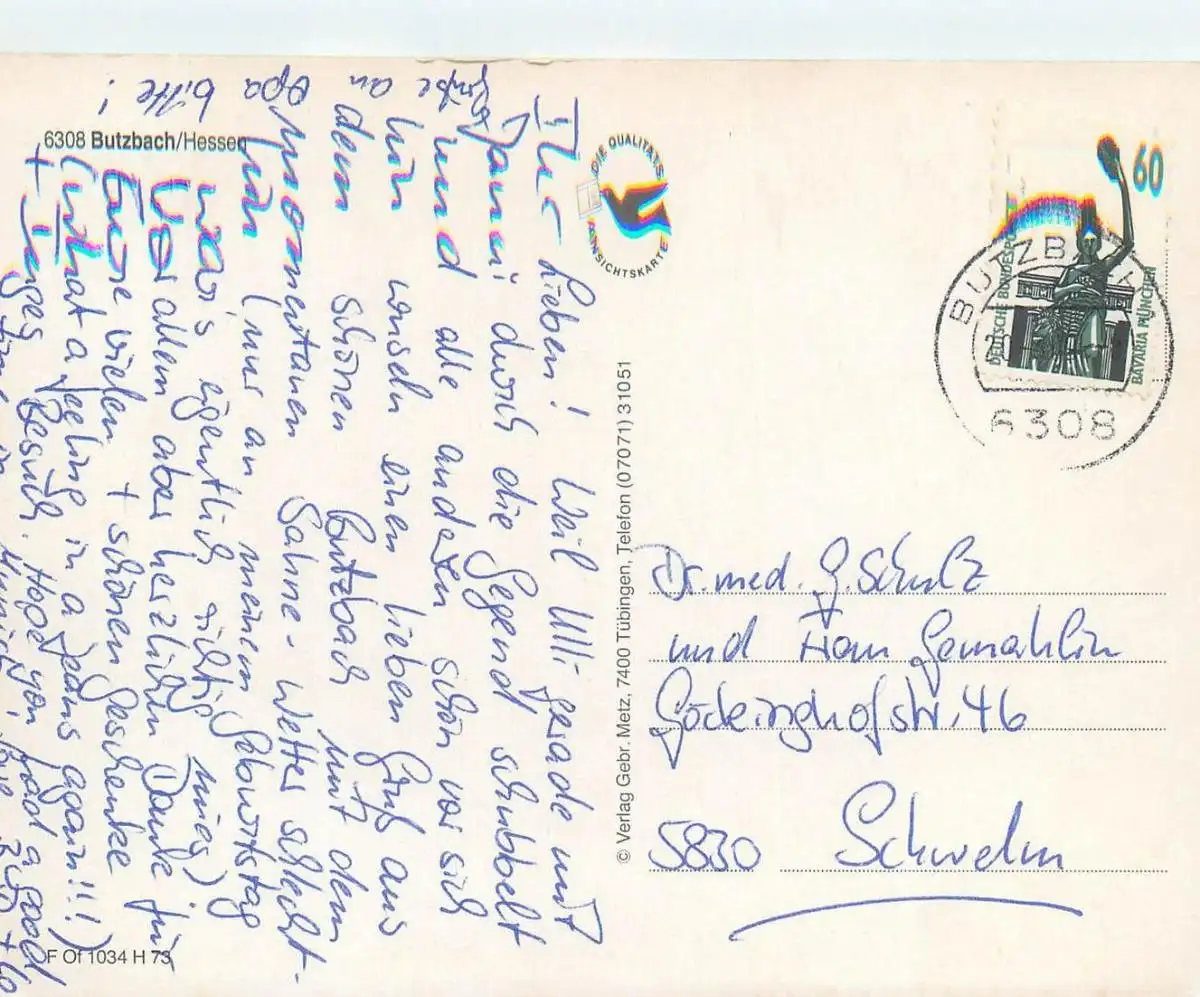 6308 Butzbach/Hessen
Ihr Lieben! Weil Ulli gerade mit
Janni durch die Gegend schubbelt
und alle anderen schön vor sich
hin wuseln einen lieben Gruß aus
dem schönen Butzbach mit dem
momentanen Sahne-Wetter schlecht-
hin (nur an meinem Geburtstag
war's eigentlich richtig mies)
Vor allem aber herzlichen Danke für
Eure vielen + schönen Geschenke
(what a feeling in a jeans again!!!)
+ Besuch. Hope you had a good
time in Munich, love
Grüße an
Opa bitte!
F Of 1034 H 73
© Verlag Gebr. Metz, 7400 Tübingen, Telefon (07071) 31051
DIE QUALITÄTS
ANSICHTSKARTE
60
DEUTSCHE BUNDESPOST
BAVARIA MÜNCHEN
BUTZBACH
6308
Dr. med. G. Schulz
und Frau Gemahlin
Göckinghofstr. 46
5830 Schwelm